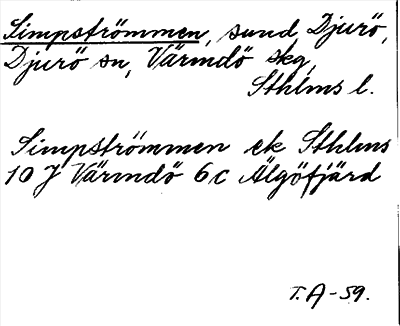 Simpströmmen, sund, Djurö,
Djurö sn, Värmdö skg,
Sthlms l.
Simpströmmen ek Sthlms
10 J Värmdö 6c Älgöfjärd
T.A-59.